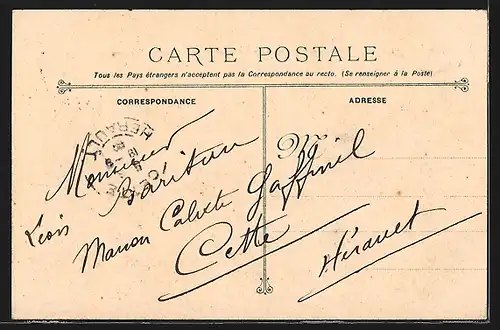 CARTE POSTALE
Tous les Pays étrangers n'acceptent pas la Correspondance au recto. (Se renseigner à la Poste)
CORRESPONDANCE
ADRESSE
HERAULT
M
Monsieur
Léon
Manon
Cette
Hérault